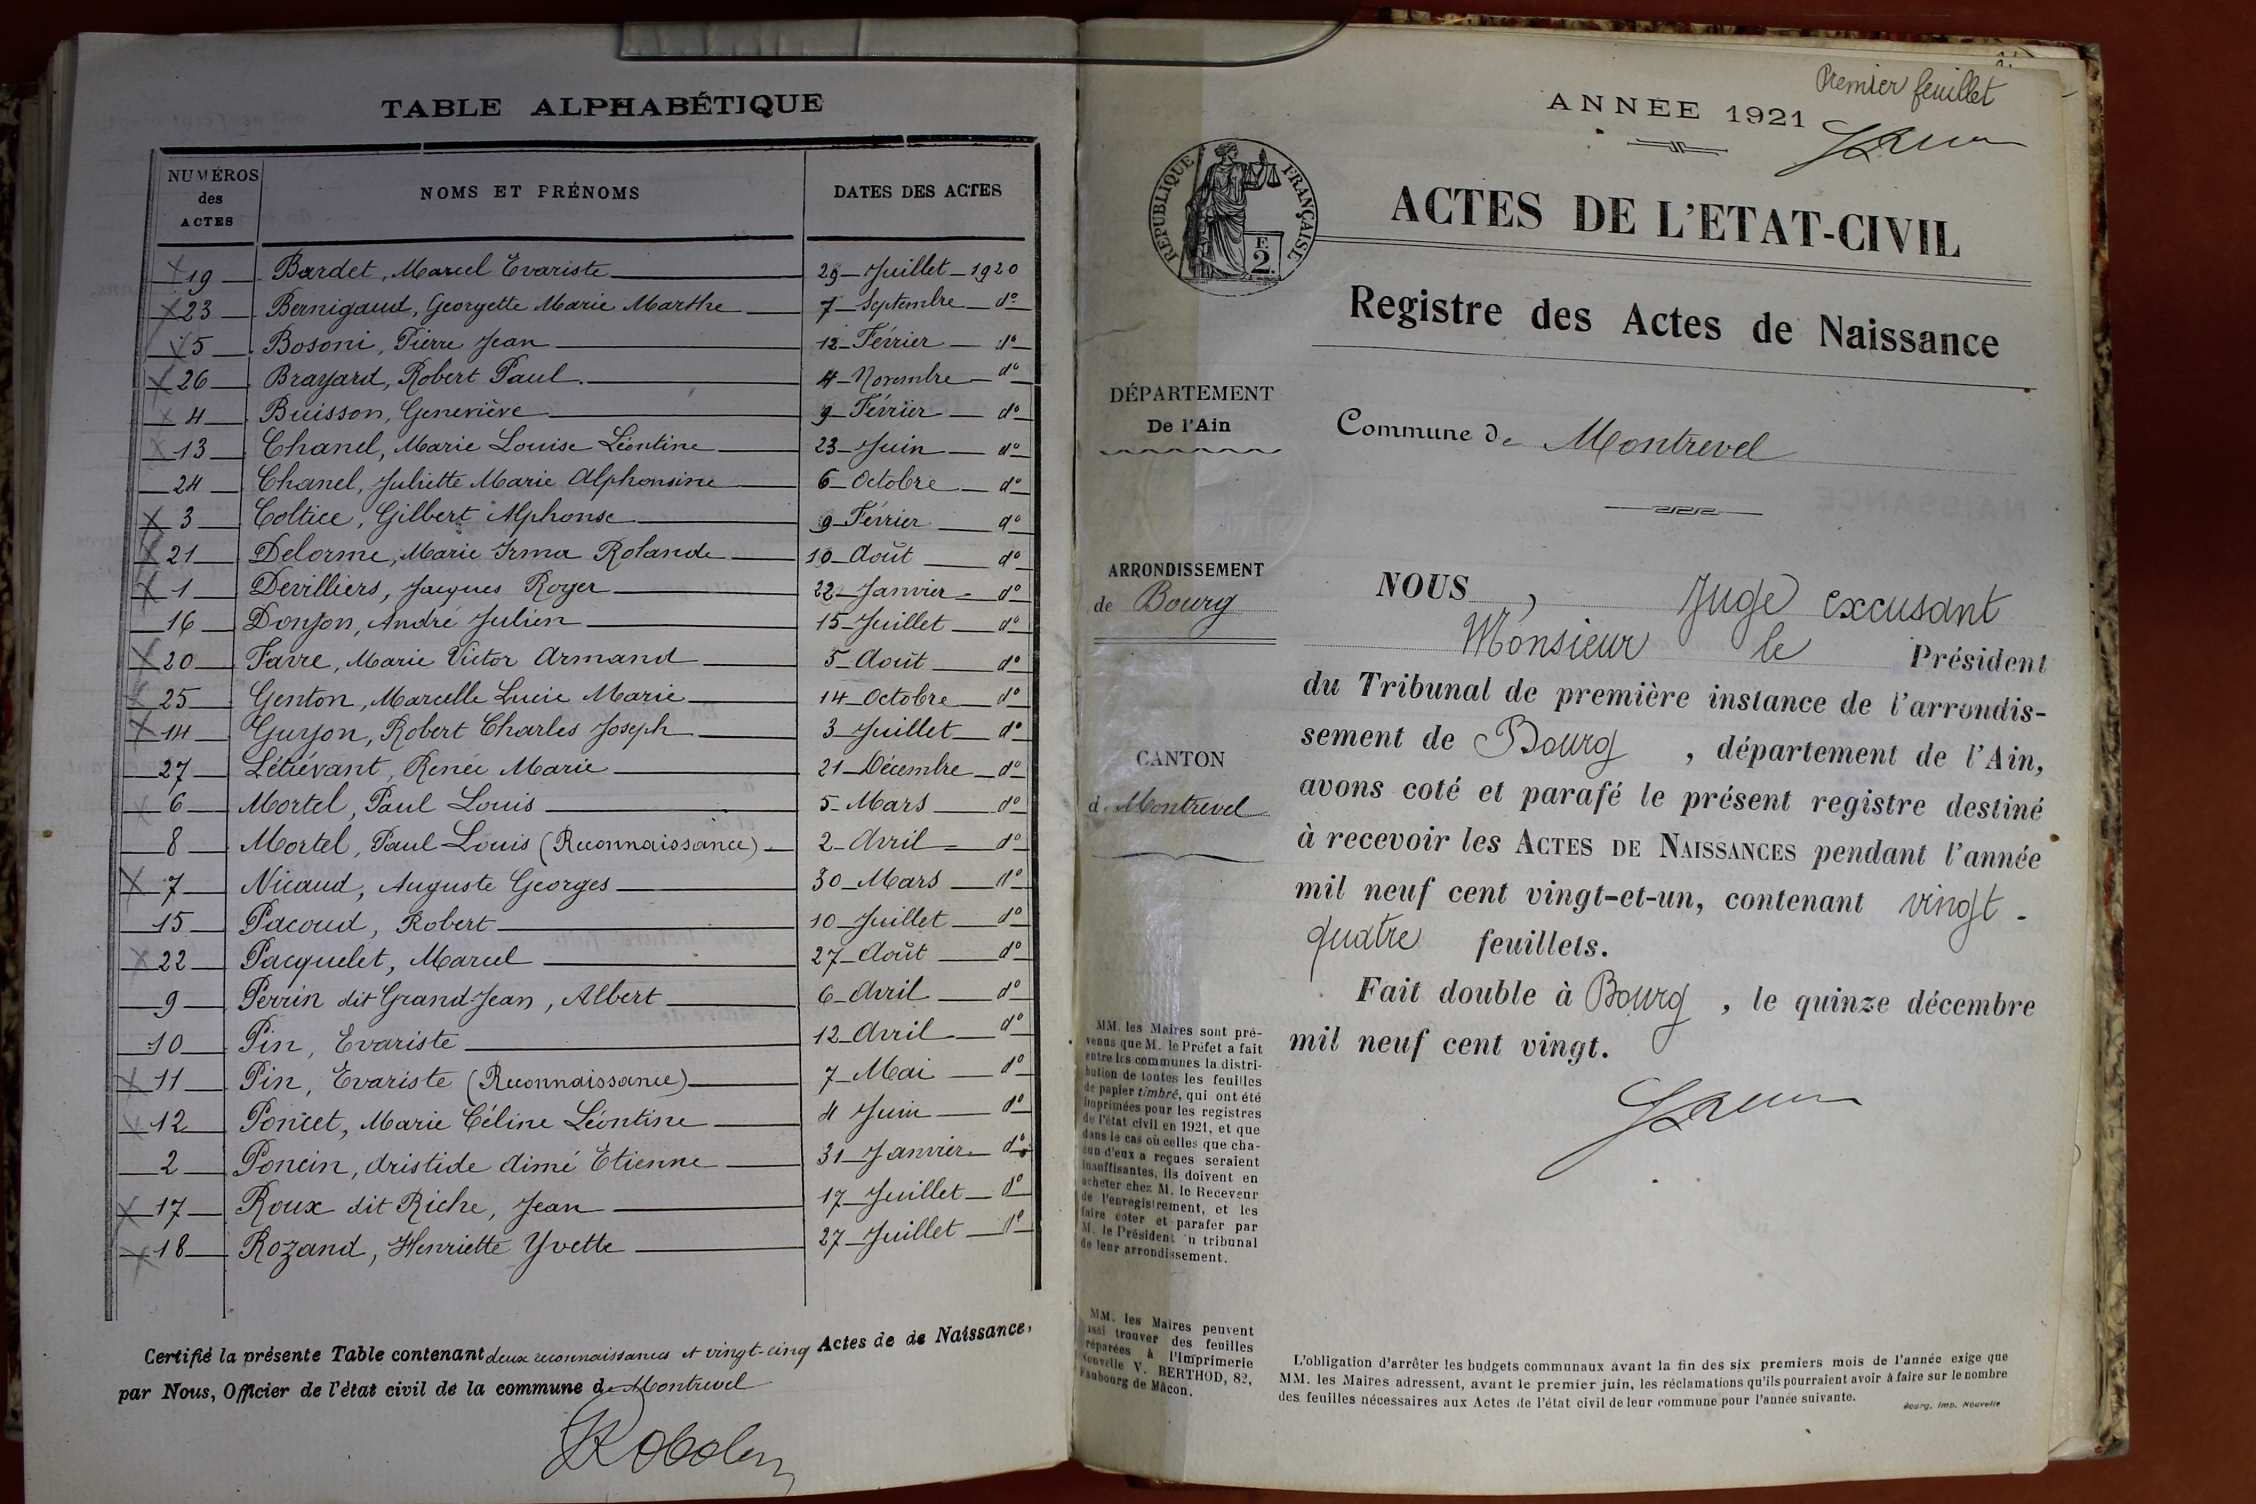 TABLE ALPHABÉTIQUE
NUMÉROS des ACTES NOMS ET PRÉNOMS DATES DES ACTES
19 Bardet, Marcel Evariste 29 Juillet 1920
23 Bernigaud, Georgette Marie Marthe 7 Septembre do
5 Bosoni, Pierre Jean 12 Février do
26 Brayard, Robert Paul. 4 Novembre do
4 Buisson, Geneviève 9 Février do
13 Chanel, Marie Louise Léontine 23 Juin do
24 Chanel, Juliette Marie Alphonsine 6 Octobre do
3 Coltice, Gilbert Alphonse 9 Février do
21 Delorme, Marie Irma Rolande 10 Août do
1 Devilliers, Jacques Roger 22 Janvier do
16 Donjon, André Julien 15 Juillet do
20 Favre, Marie Victor Armand 5 Août do
25 Genton, Marcelle Lucie Marie 14 Octobre do
14 Guyon, Robert Charles Joseph 3 Juillet do
27 Létiévant, Renée Marie 21 Décembre do
6 Mortel, Paul Louis 5 Mars do
8 Mortel, Paul Louis (Reconnaissance) 2 Avril do
7 Nicaud, Auguste Georges 30 Mars do
15 Pacoud, Robert 10 Juillet do
22 Pacquelet, Marcel 27 Août do
9 Perrin dit Grand-Jean, Albert 6 Avril do
10 Pin, Evariste 12 Avril do
11 Pin, Evariste (Reconnaissance) 7 Mai do
12 Poncet, Marie Céline Léontine 4 Juin do
2 Poncin, Aristide Aimé Étienne 31 Janvier do
17 Roux dit Riche, Jean 17 Juillet do
18 Rozand, Henriette Yvette 27 Juillet do
Certifié la présente Table contenant deux reconnaissances et vingt-cinq Actes de de Naissance,
par Nous, Officier de l'état civil de la commune de Montrevel
Premier feuillet
ANNÉE 1921
RÉPUBLIQUE FRANÇAISE
F. 2.
ACTES DE L'ETAT-CIVIL
Registre des Actes de Naissance
DÉPARTEMENT
De l'Ain
Commune de Montrevel
ARRONDISSEMENT
de Bourg
CANTON
de Montrevel
NOUS, Juge excusant
Monsieur le Président
du Tribunal de première instance de l'arrondis-
sement de Bourg, département de l'Ain,
avons coté et parafé le présent registre destiné
à recevoir les ACTES DE NAISSANCES pendant l'année
mil neuf cent vingt-et-un, contenant vingt-
quatre feuillets.
Fait double à Bourg, le quinze décembre
mil neuf cent vingt.
MM. les Maires sont pré-
venus que M. le Préfet a fait
entre les communes la distri-
bution de toutes les feuilles
de papier timbré, qui ont été
imprimées pour les registres
de l'état civil en 1921, et que
dans le cas où celles que cha-
cun d'eux a reçues seraient
insuffisantes, ils doivent en
acheter chez M. le Receveur
de l'enregistrement, et les
faire coter et parafer par
M. le Président du tribunal
de leur arrondissement.
MM. les Maires peuvent
aussi trouver des feuilles
préparées à l'Imprimerie
Nouvelle V. BERTHOD, 82,
Faubourg de Mâcon.
L'obligation d'arrêter les budgets communaux avant la fin des six premiers mois de l'année exige que
MM. les Maires adressent, avant le premier juin, les réclamations qu'ils pourraient avoir à faire sur le nombre
des feuilles nécessaires aux Actes de l'état civil de leur commune pour l'année suivante.
Bourg, Imp. Nouvelle